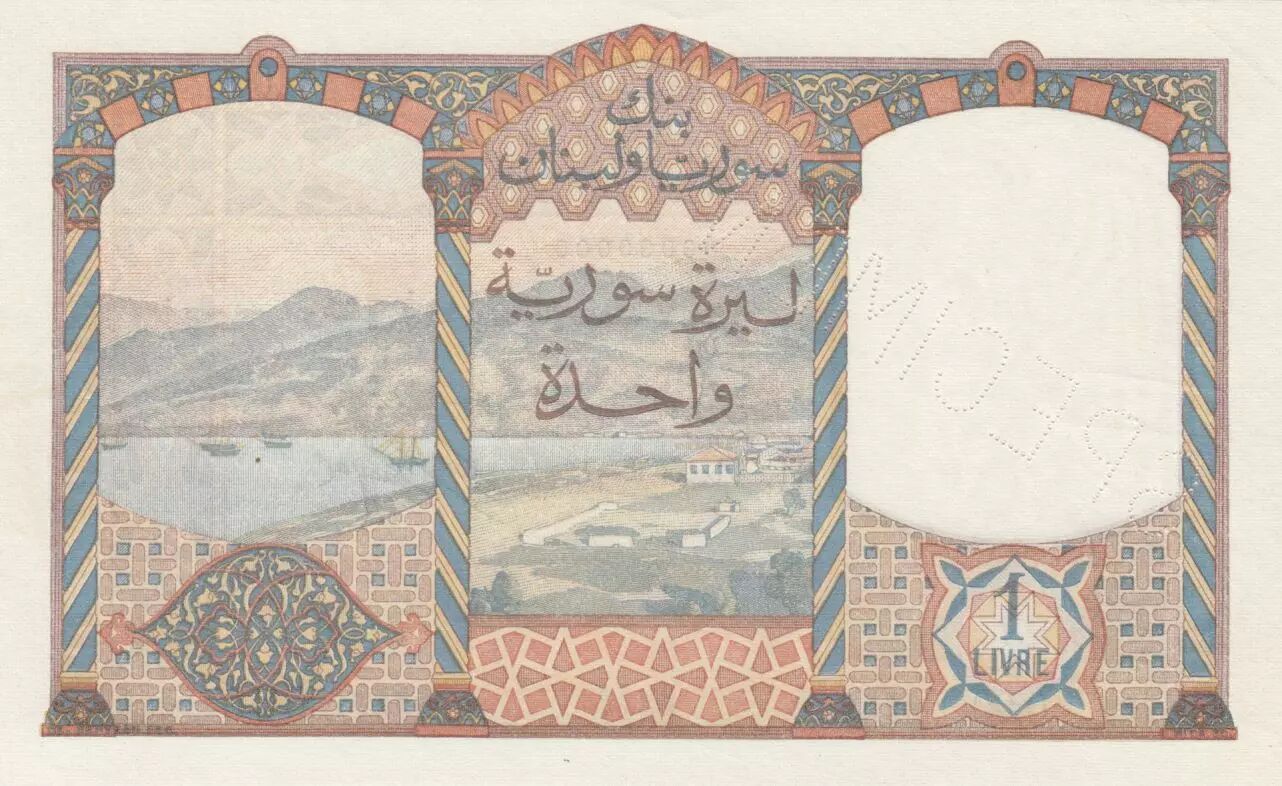 بنك
سوريا ولبنان
ليرة سوريّة
واحدة
1
LIVRE
SPECIMEN